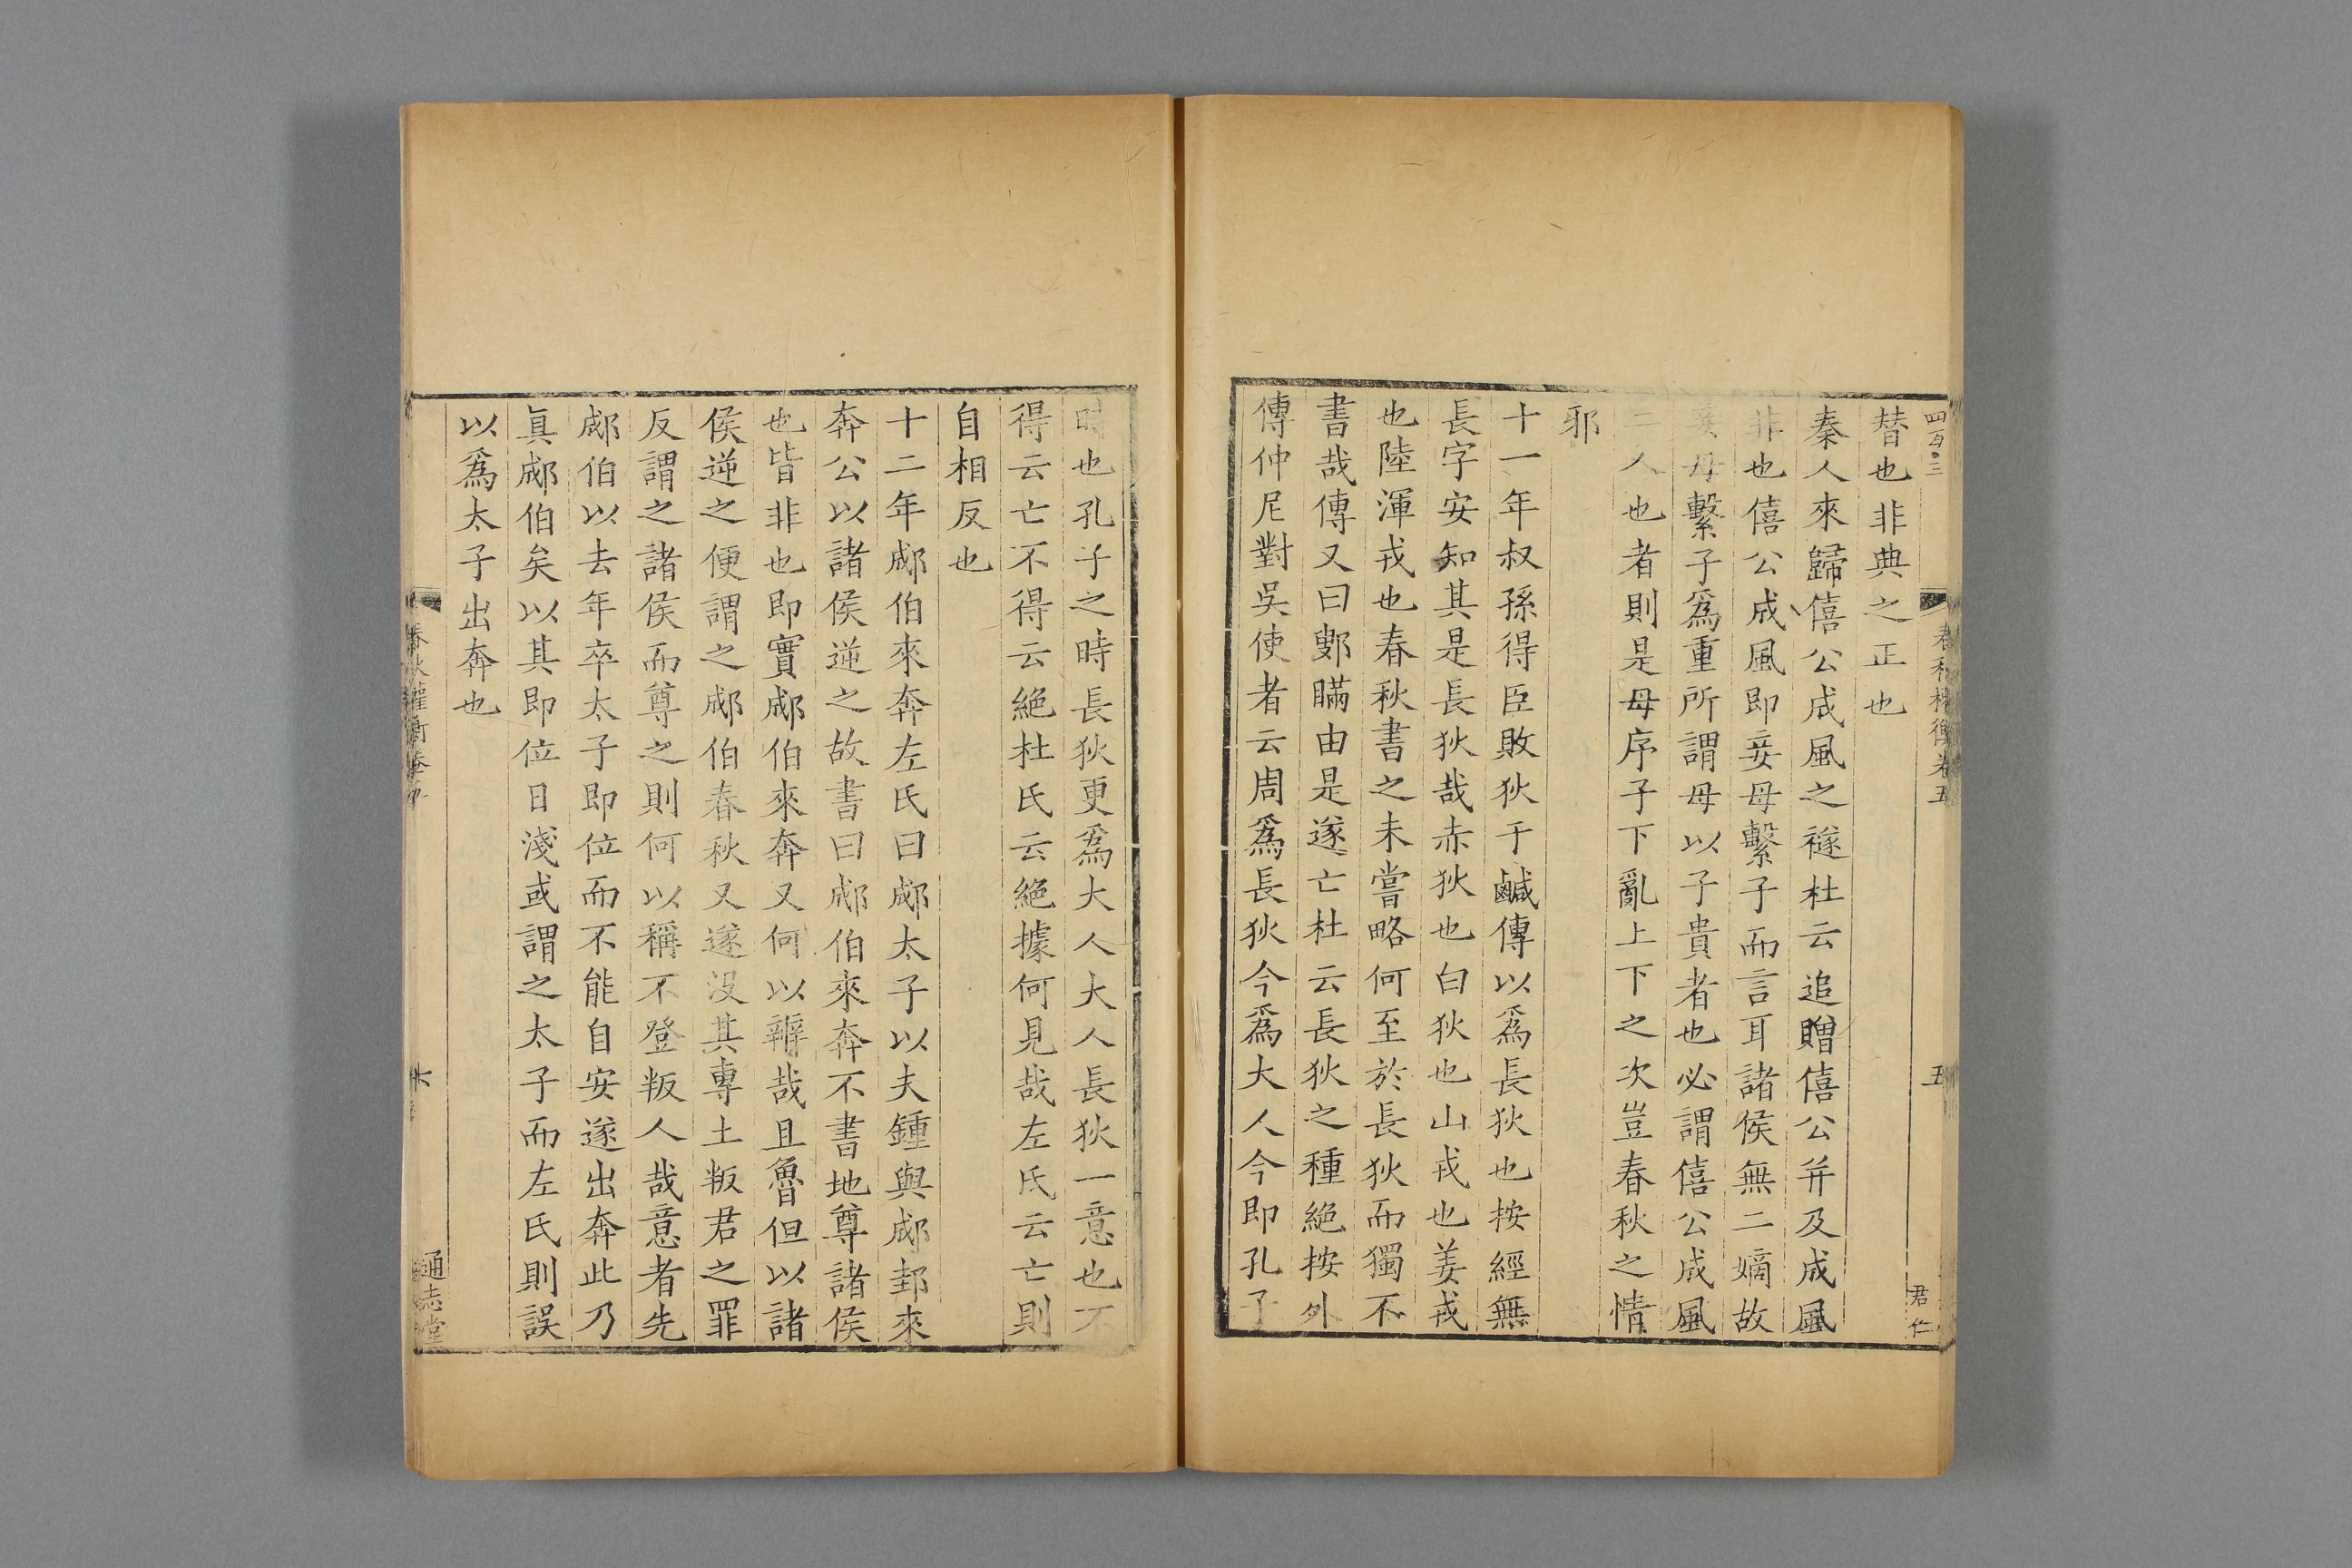 四百〇三
春秋權衡卷五
五
君仁
替也非典之正也
秦人來歸僖公成風之襚杜云追贈僖公并及成風
非也僖公成風即妾母繫子而言耳諸侯無二嫡故
妾母繫子爲重所謂母以子貴者也必謂僖公成風
二人也者則是母序子下亂上下之次豈春秋之情
邪
十一年叔孫得臣敗狄于鹹傳以爲長狄也按經無
長字安知其是長狄哉赤狄也白狄也山戎也姜戎
也陸渾戎也春秋書之未嘗略何至於長狄而獨不
書哉傳又曰鄋瞞由是遂亡杜云長狄之種絕按外
傳仲尼對吳使者云周爲長狄今爲大人今即孔子
時也孔子之時長狄更爲大人大人長狄一意也不
得云亡不得云絕杜氏云絕據何見哉左氏云亡則
自相反也
十二年郕伯來奔左氏曰郕太子以夫鍾與郕邽來
奔公以諸侯逆之故書曰郕伯來奔不書地尊諸侯
也皆非也即實郕伯來奔又何以辨哉且魯但以諸
侯逆之便謂之郕伯春秋又遂沒其專土叛君之罪
反謂之諸侯而尊之則何以稱不登叛人哉意者先
郕伯以去年卒太子即位而不能自安遂出奔此乃
眞郕伯矣以其即位日淺或謂之太子而左氏則誤
以爲太子出奔也
春秋權衡卷五
六
通志堂